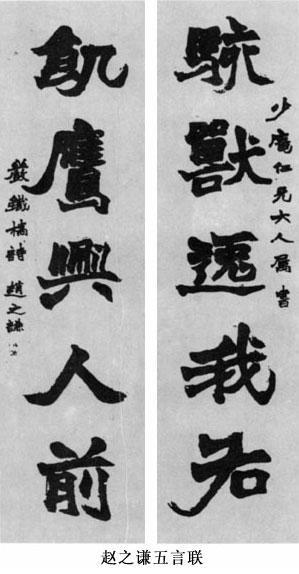 駭獸逸我右
少仁兄大人屬書
飢鷹興人前
嚴鐵橋詩 趙之謙
赵之谦五言联